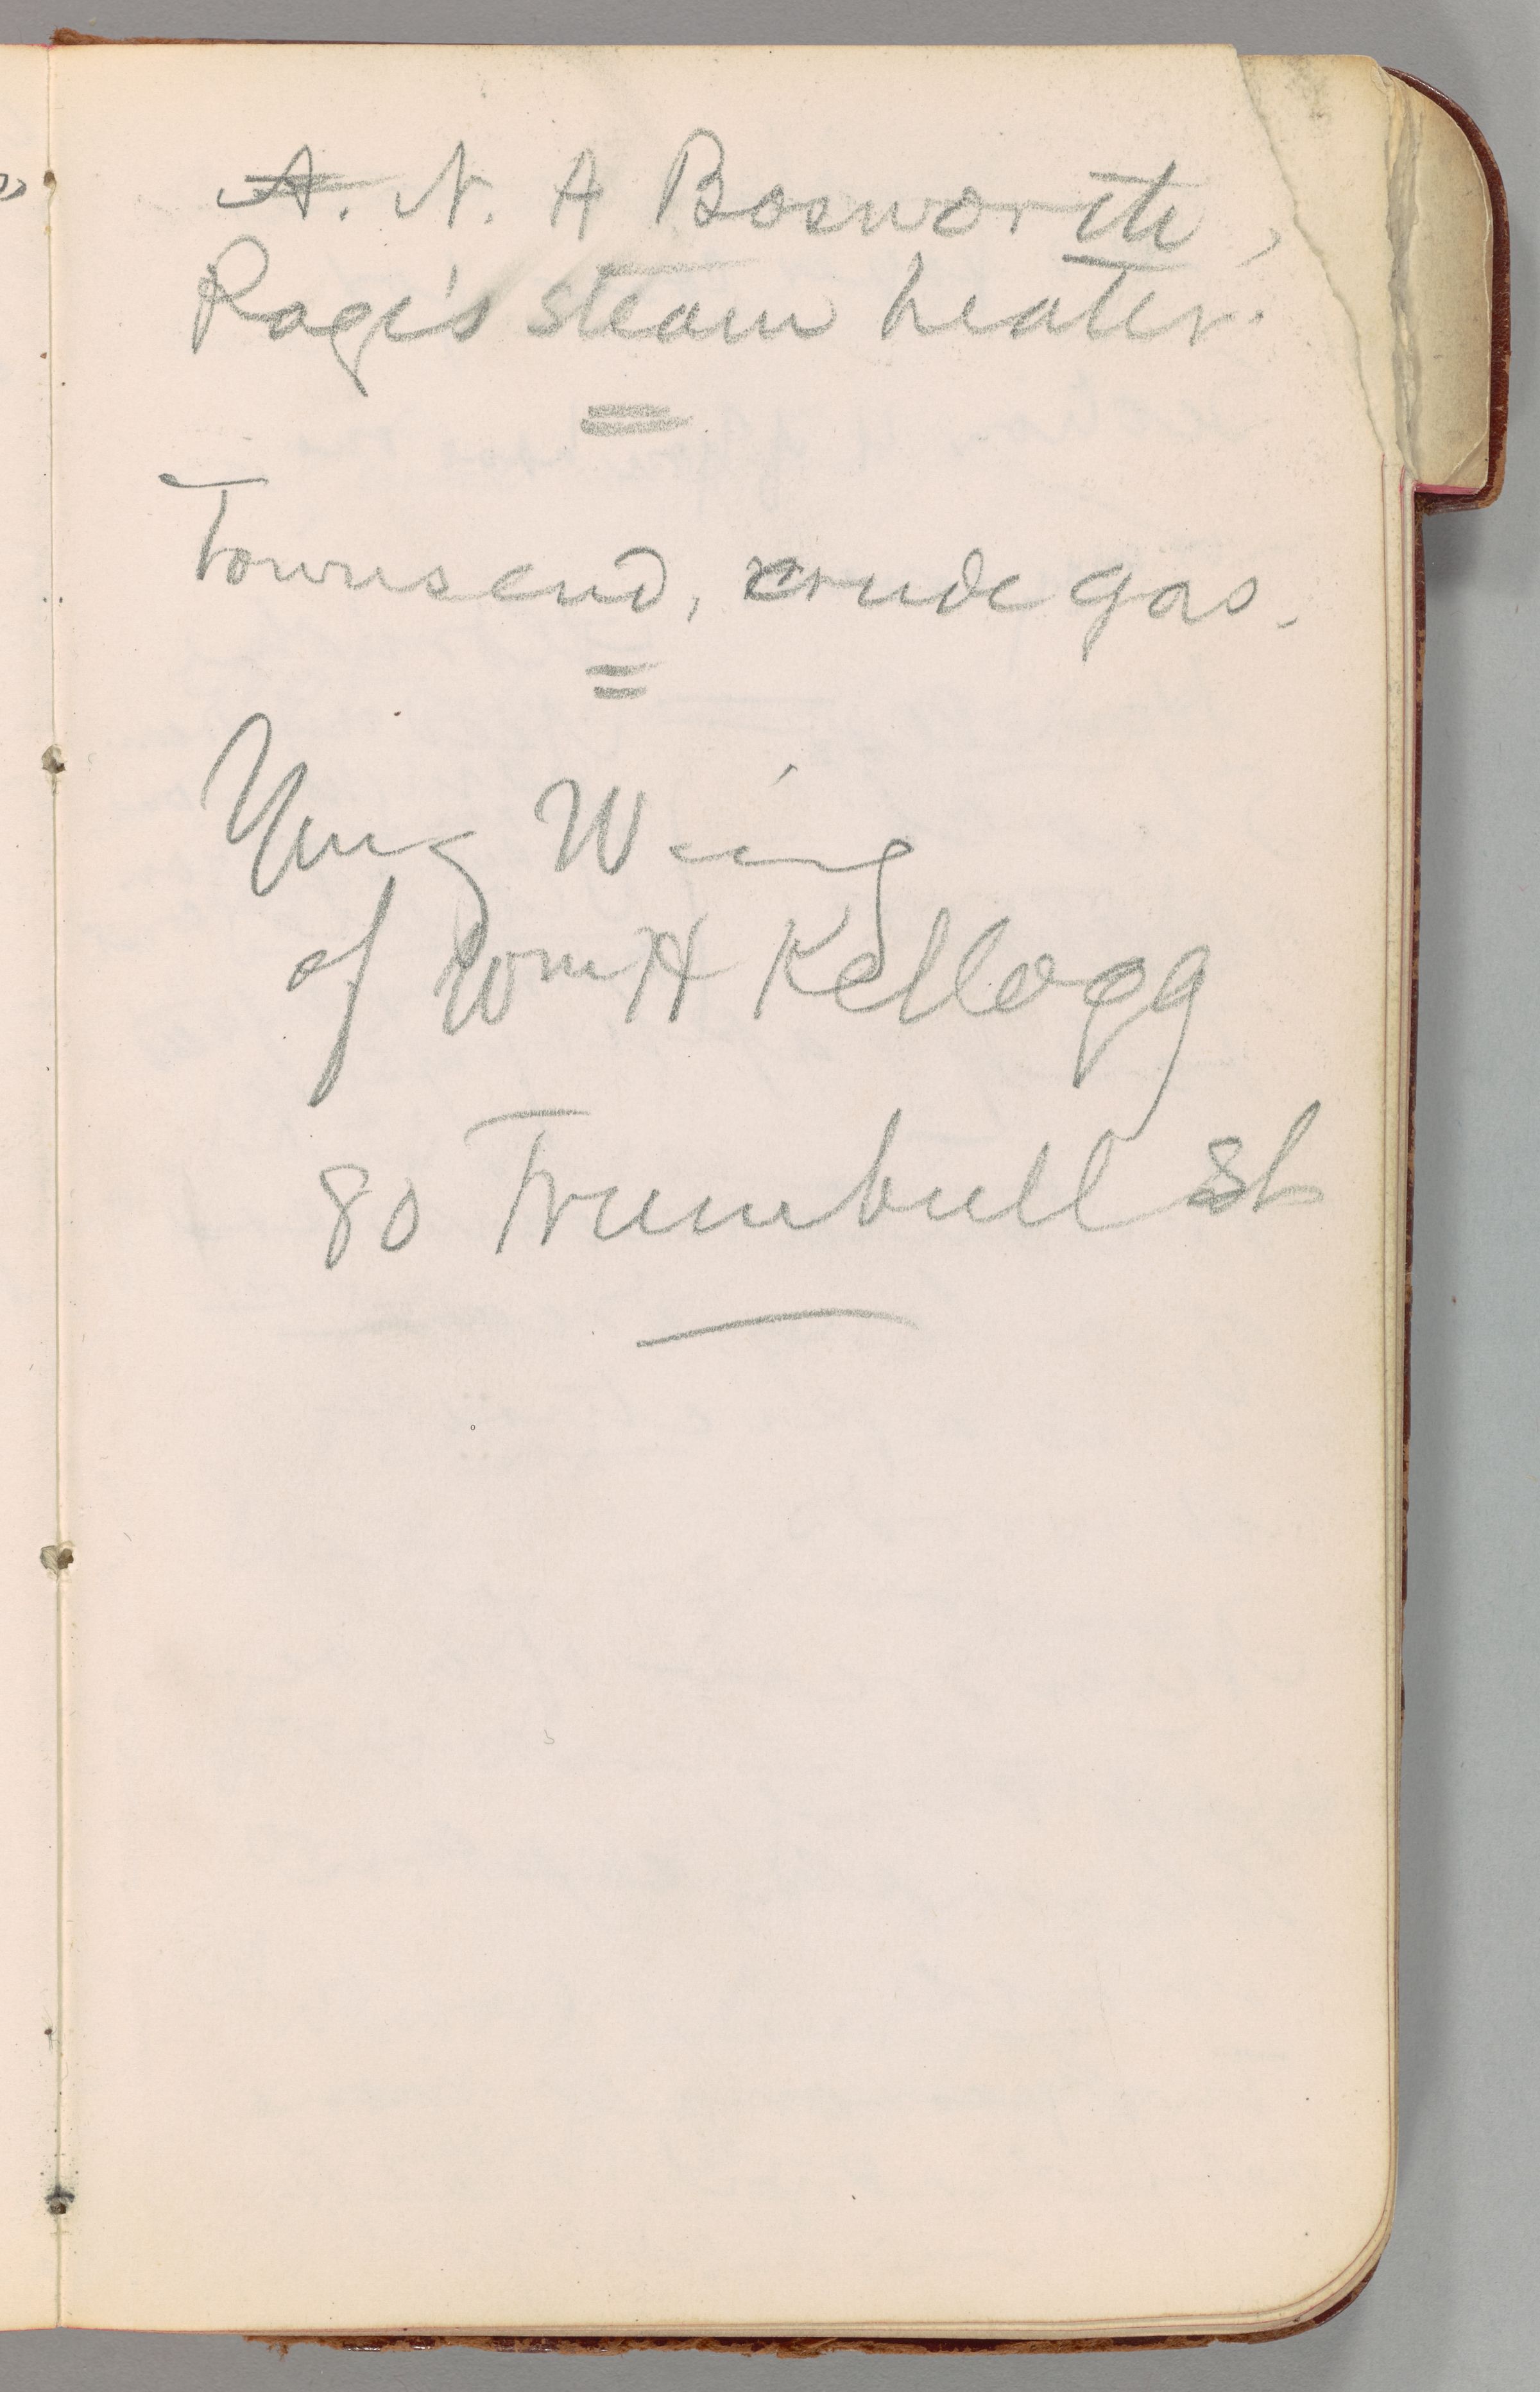 A. N. A Bosworth,
Page's steam heater.
Townsend, crude gas.
Yung Wing
of Wm H Kellogg
80 Trumbull St